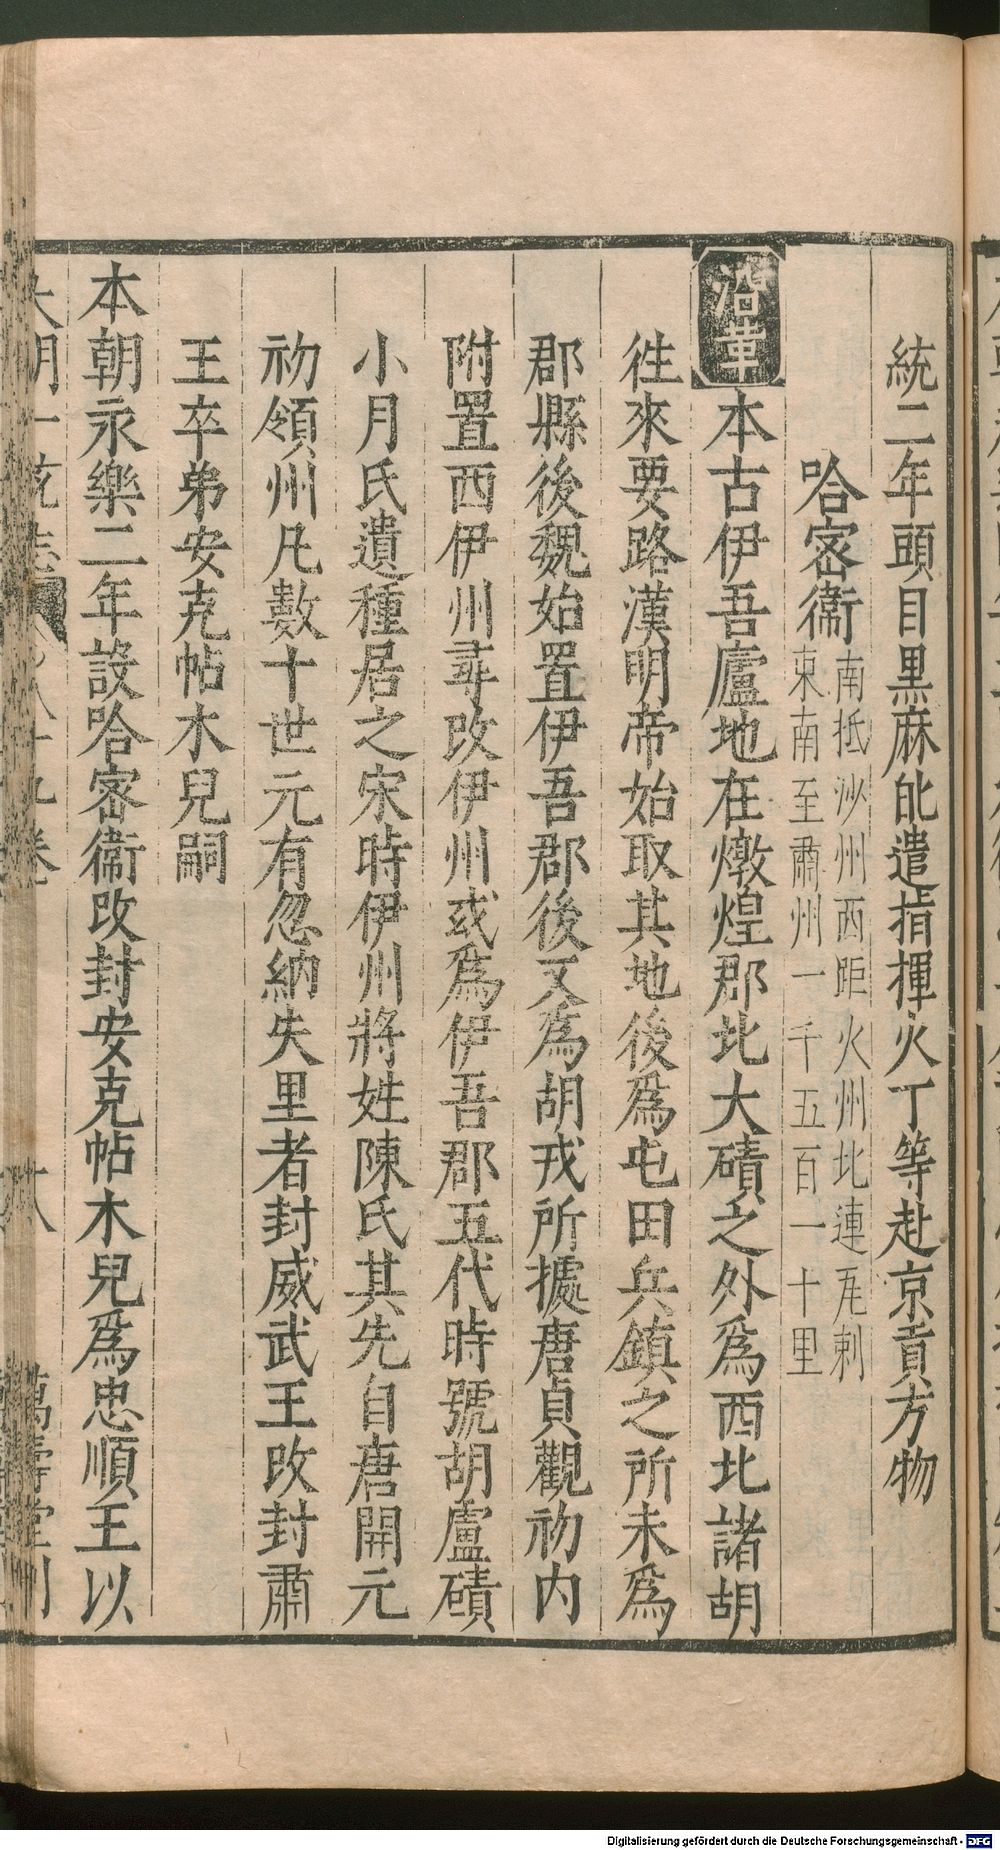 統二年頭目黒麻㪰遣指揮火丁等赴京貢方物
哈密衞
南抵沙州西距火州北連瓦剌
東南至肅州一千五百一十里
沿革
本古伊吾廬地在燉煌郡北大磧之外為西北諸胡
徃來要路漢明帝始取其地後為屯田兵鎮之所未為
郡縣後魏始置伊吾郡後又為胡戎所據唐貞觀初内
附置西伊州尋改伊州或為伊吾郡五代時號胡盧磧
小月氏遺種居之宋時伊州將姓陳氏其先自唐開元
初領州凡數十世元有忽納失里者封威武王改封肅
王卒弟安克帖木兒嗣
本朝永樂二年設哈密衞改封安克帖木兒為忠順王以
大明一統志 八十九卷 十八 萬壽堂刊
Digitalisierung gefördert durch die Deutsche Forschungsgemeinschaft - DFG